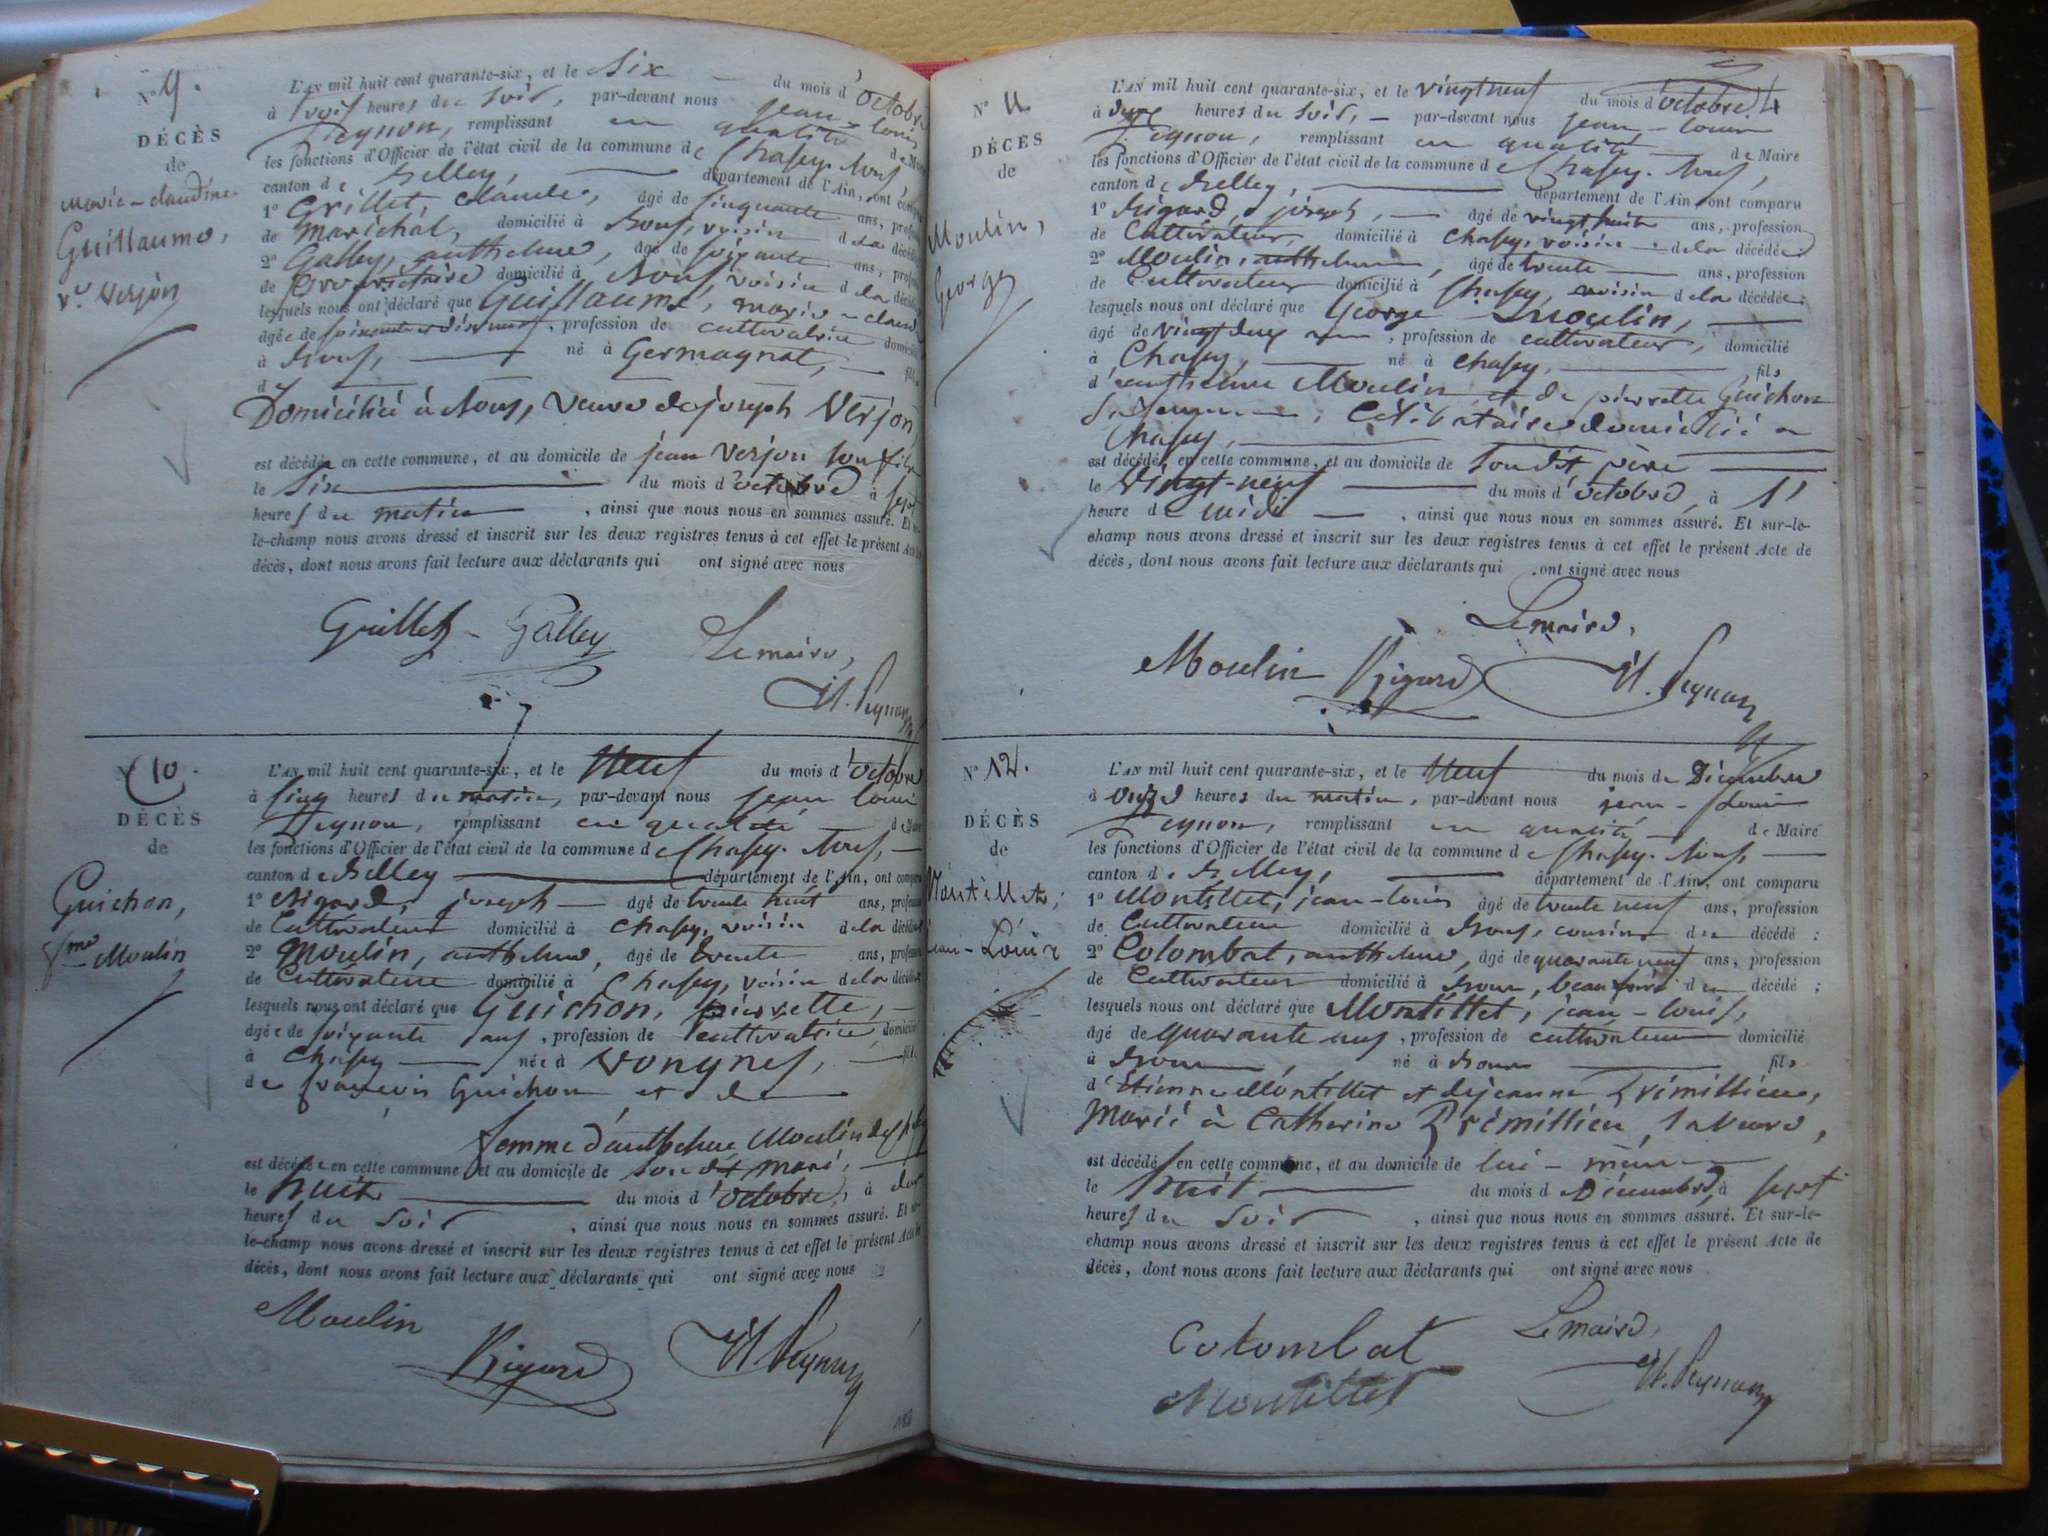 N° 9.
DÉCÈS
de
Marie-claudine
Guillaume,
Vve Verjon
L'AN mil huit cent quarante-six, et le Six du mois d'octobre
à trois heures du soir, par-devant nous jean-louis
Peynon, remplissant en qualité de Maire
les fonctions d'Officier de l'état civil de la commune de Chasey-Bons,
canton de Belley, département de l'Ain, ont comparu
1° Grillet Claude, âgé de cinquante ans, profession
de Maréchal, domicilié à Bons, voisin de la décédée
2° Galley, anthelme, âgé de soixante ans, profession
de Propriétaire domicilié à Bons, voisin de la décédée
lesquels nous ont déclaré que Guillaume, marie-claudine
âgée de soixante et dix neuf, profession de cultivatrice domiciliée
à Bons, né à Germagnat, fille
d
Domiciliée à Bons, veuve de joseph Verjon,
est décédée en cette commune, et au domicile de jean Verjon son fils
le Six du mois d'octobre à sept
heures du matin, ainsi que nous nous en sommes assuré. Et sur-
le-champ nous avons dressé et inscrit sur les deux registres tenus à cet effet le présent Acte de
décès, dont nous avons fait lecture aux déclarants qui ont signé avec nous
Grillet Galley Le maire,
Peynon
N° 10.
DÉCÈS
de
Guichon,
fme Moulin
L'AN mil huit cent quarante-six, et le Neuf du mois d'octobre
à cinq heures du matin, par-devant nous jean louis
Peynon, remplissant en qualité de Maire
les fonctions d'Officier de l'état civil de la commune de Chasey-Bons,
canton de Belley département de l'Ain, ont comparu
1° Rigard, joseph âgé de trente huit ans, profession
de Cultivateur domicilié à Chasey, voisin de la décédée
2° Moulin, anthelme, âgé de trente ans, profession
de Cultivateur domicilié à Chasey, voisin de la décédée
lesquels nous ont déclaré que Guichon, pierrette,
âgée de soixante ans, profession de cultivatrice, domiciliée
à Chasey née à Vongnes, fille
de françois Guichon et de
femme d'anthelme Moulin
est décédée en cette commune et au domicile de son dit mari,
le huit du mois d'octobre, à deux
heures du soir, ainsi que nous nous en sommes assuré. Et sur-
le-champ nous avons dressé et inscrit sur les deux registres tenus à cet effet le présent Acte de
décès, dont nous avons fait lecture aux déclarants qui ont signé avec nous
Moulin
Rigard Peynon
N° 11
DÉCÈS
de
Moulin,
George
L'AN mil huit cent quarante-six, et le vingt neuf du mois d'octobre
à deux heures du soir, par-devant nous jean-louis
Peynon, remplissant en qualité de Maire
les fonctions d'Officier de l'état civil de la commune de Chasey-Bons,
canton de Belley, département de l'Ain ont comparu
1° Rigard, joseph, âgé de vingt huit ans, profession
de Cultivateur, domicilié à Chasey, voisin de la décédée
2° Moulin, anthelme, âgé de trente ans, profession
de Cultivateur domicilié à Chasey, voisin de la décédée
lesquels nous ont déclaré que George Moulin,
âgé de vingt deux ans, profession de cultivateur, domicilié
à Chasey, né à Chasey, fils
d'anthelme Moulin et de pierrette Guichon
sa femme, Célibataire domicilié à
Chasey,
est décédé, en cette commune, et au domicile de son dit père
le Vingt-neuf du mois d'octobre, à 1
heure de midi, ainsi que nous nous en sommes assuré. Et sur-le-
champ nous avons dressé et inscrit sur les deux registres tenus à cet effet le présent Acte de
décès, dont nous avons fait lecture aux déclarants qui ont signé avec nous
Le maire,
Moulin Rigard Peynon
N° 12.
DÉCÈS
de
Montillet,
jean-Louis
L'AN mil huit cent quarante-six, et le Neuf du mois de Décembre
à onze heures du matin, par-devant nous jean-Louis
Peynon, remplissant en qualité de Maire
les fonctions d'Officier de l'état civil de la commune de Chasey-Bons,
canton de Belley, département de l'Ain, ont comparu
1° Montillet, jean-louis âgé de trente neuf ans, profession
de Cultivateur domicilié à Bons, cousin du décédé :
2° Colombat, anthelme, âgé de quarante neuf ans, profession
de Cultivateur domicilié à Bons, beau frère du décédé ;
lesquels nous ont déclaré que Montillet, jean-louis,
âgé de quarante ans, profession de cultivateur domicilié
à Bons, né à Bons fils
d'Etienne Montillet et de jeanne Brémillieu,
Marié à Catherine Brémillieu, sa veuve,
est décédé en cette commune, et au domicile de lui-même
le huit du mois de Décembre, à sept
heures du soir, ainsi que nous nous en sommes assuré. Et sur-le-
champ nous avons dressé et inscrit sur les deux registres tenus à cet effet le présent Acte de
décès, dont nous avons fait lecture aux déclarants qui ont signé avec nous
Colombat Le maire,
Montillet Peynon